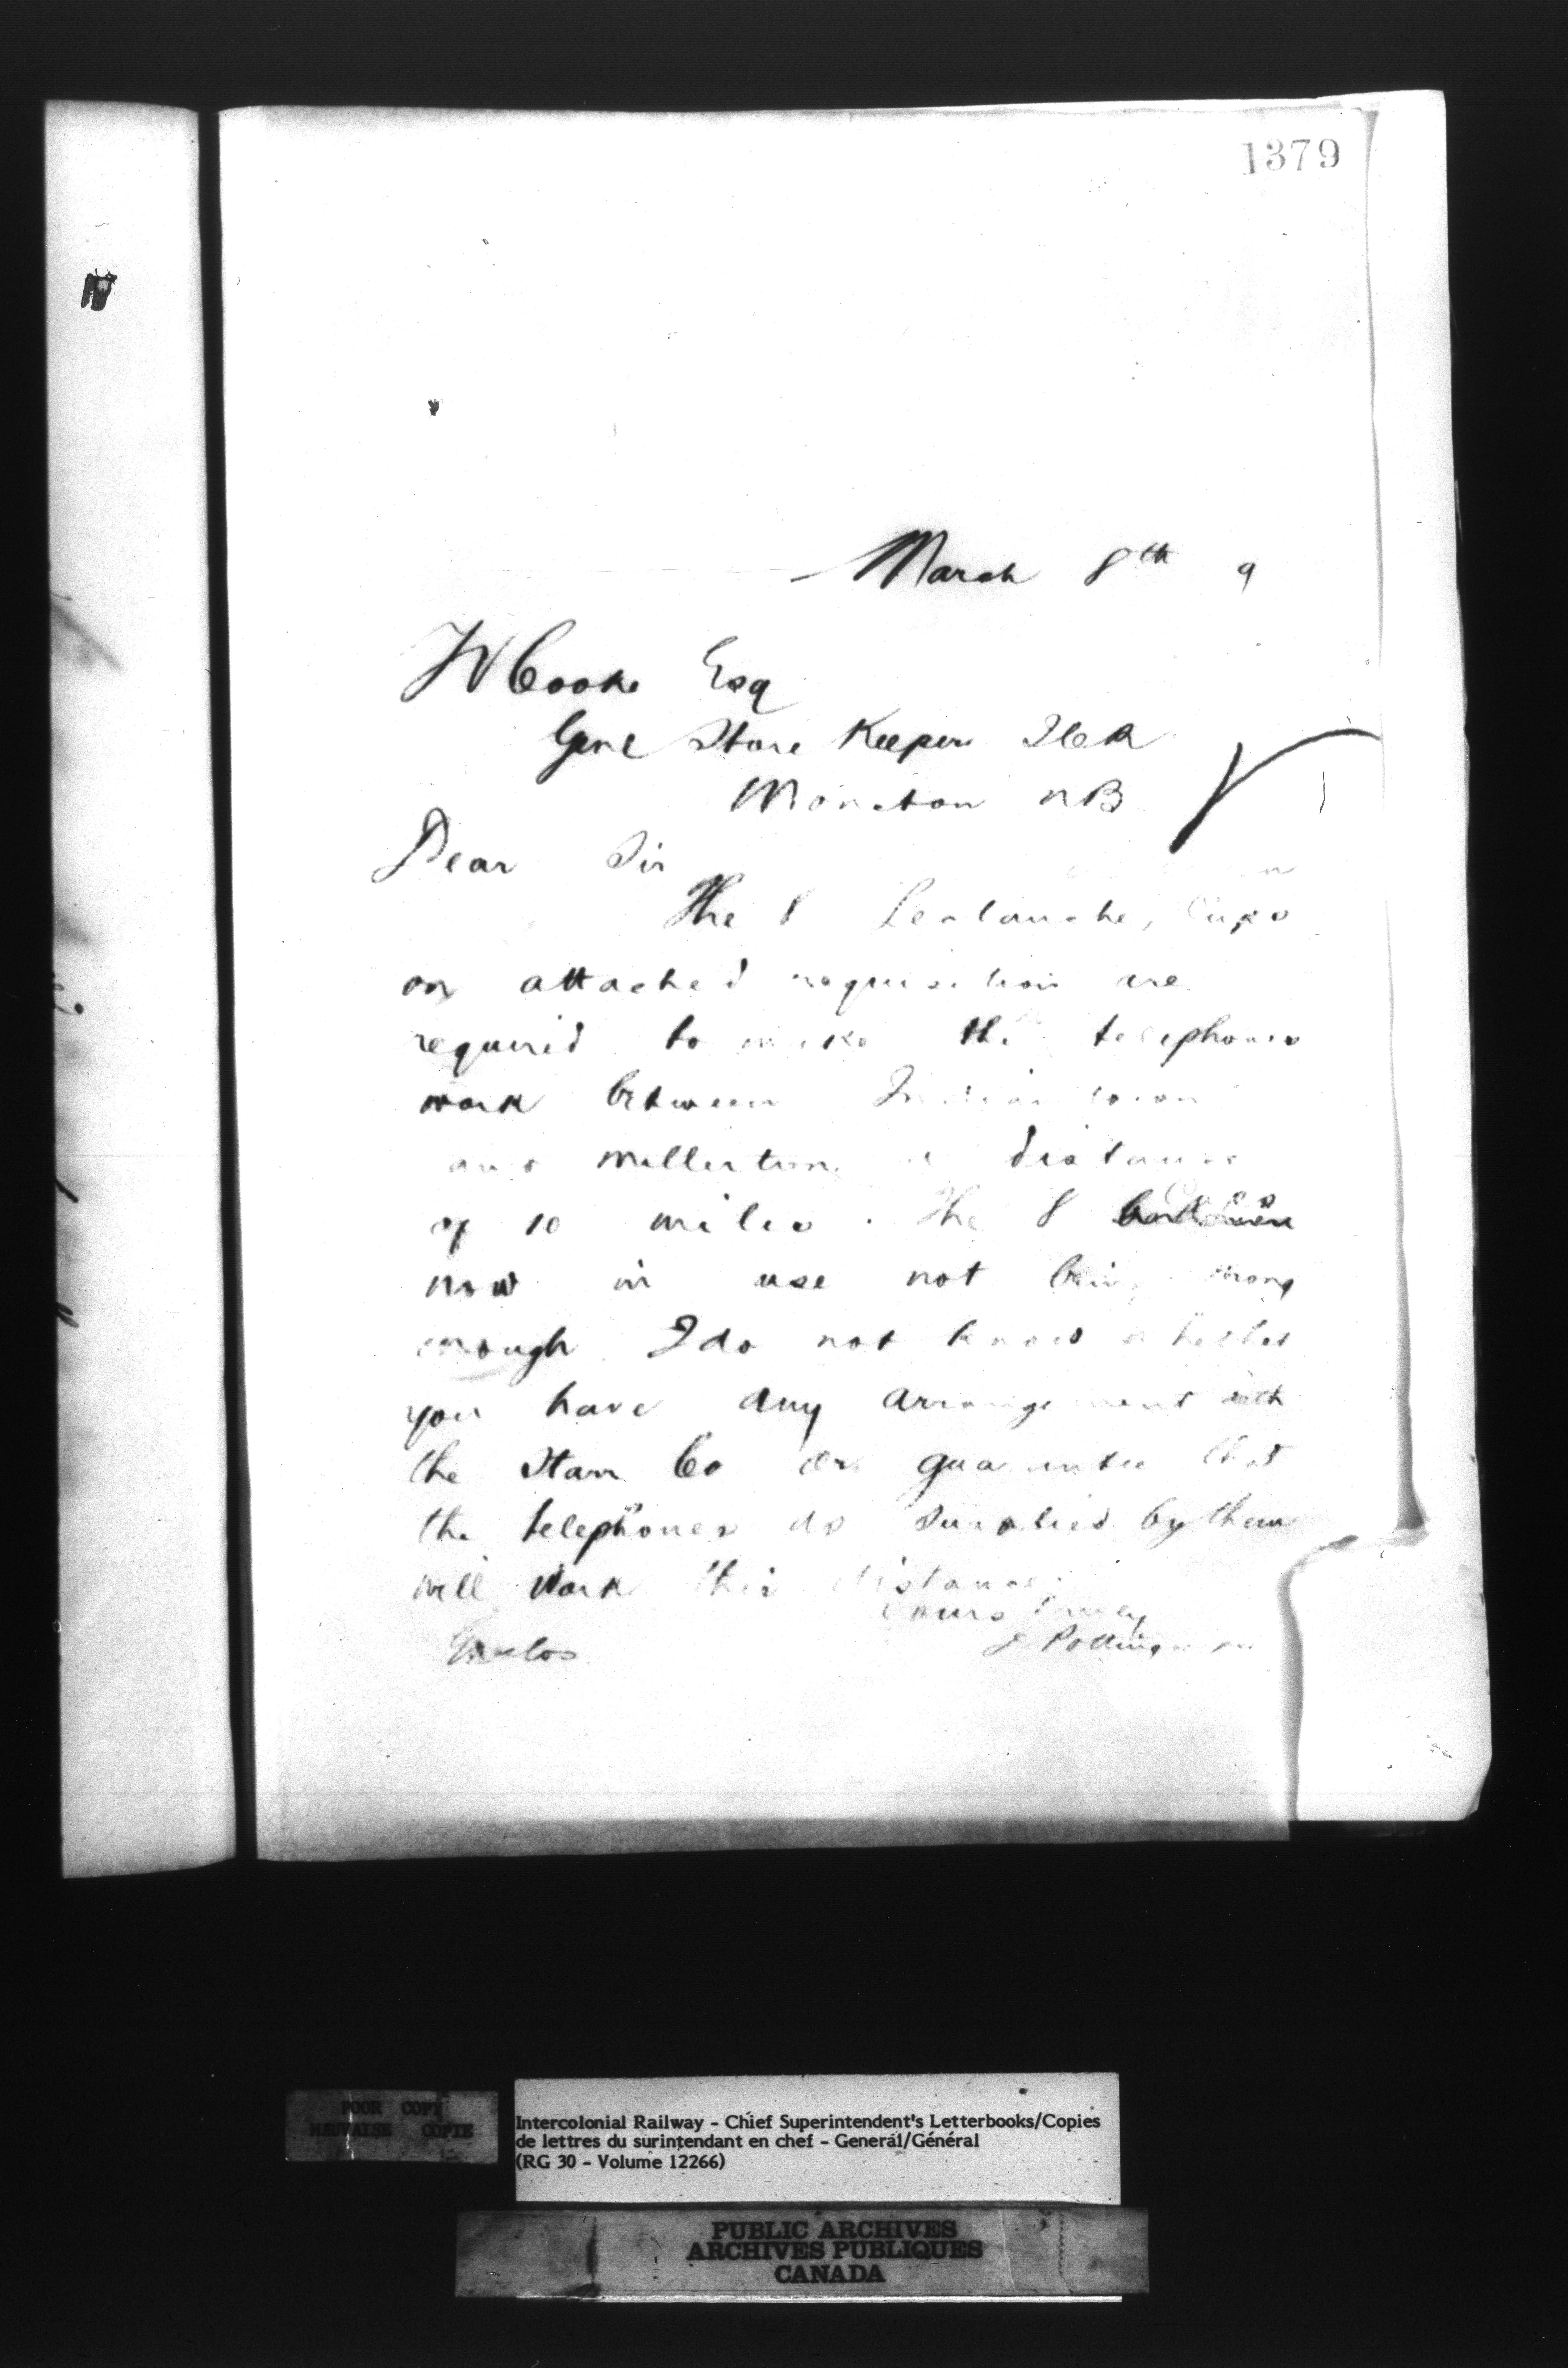 1379
March 8th 9
W Cooke Esq
Genl Store Keeper ICR
Moncton NB
Dear Sir
The 8 Leclanche, Cups
on attached requisition are
required to make the telephones
work between Indian town
and Millerton a distance
of 10 miles. The 8
now in use not being strong
enough I do not know whether
you have any arrangement with
the Starr Co or guarantee that
the telephones do supplied by them
will work this distance.
Yours truly
D Pottinger
Enclos
POOR COPY
MAUVAISE COPIE
Intercolonial Railway - Chief Superintendent's Letterbooks/Copies
de lettres du surintendant en chef - General/Général
(RG 30 - Volume 12266)
PUBLIC ARCHIVES
ARCHIVES PUBLIQUES
CANADA